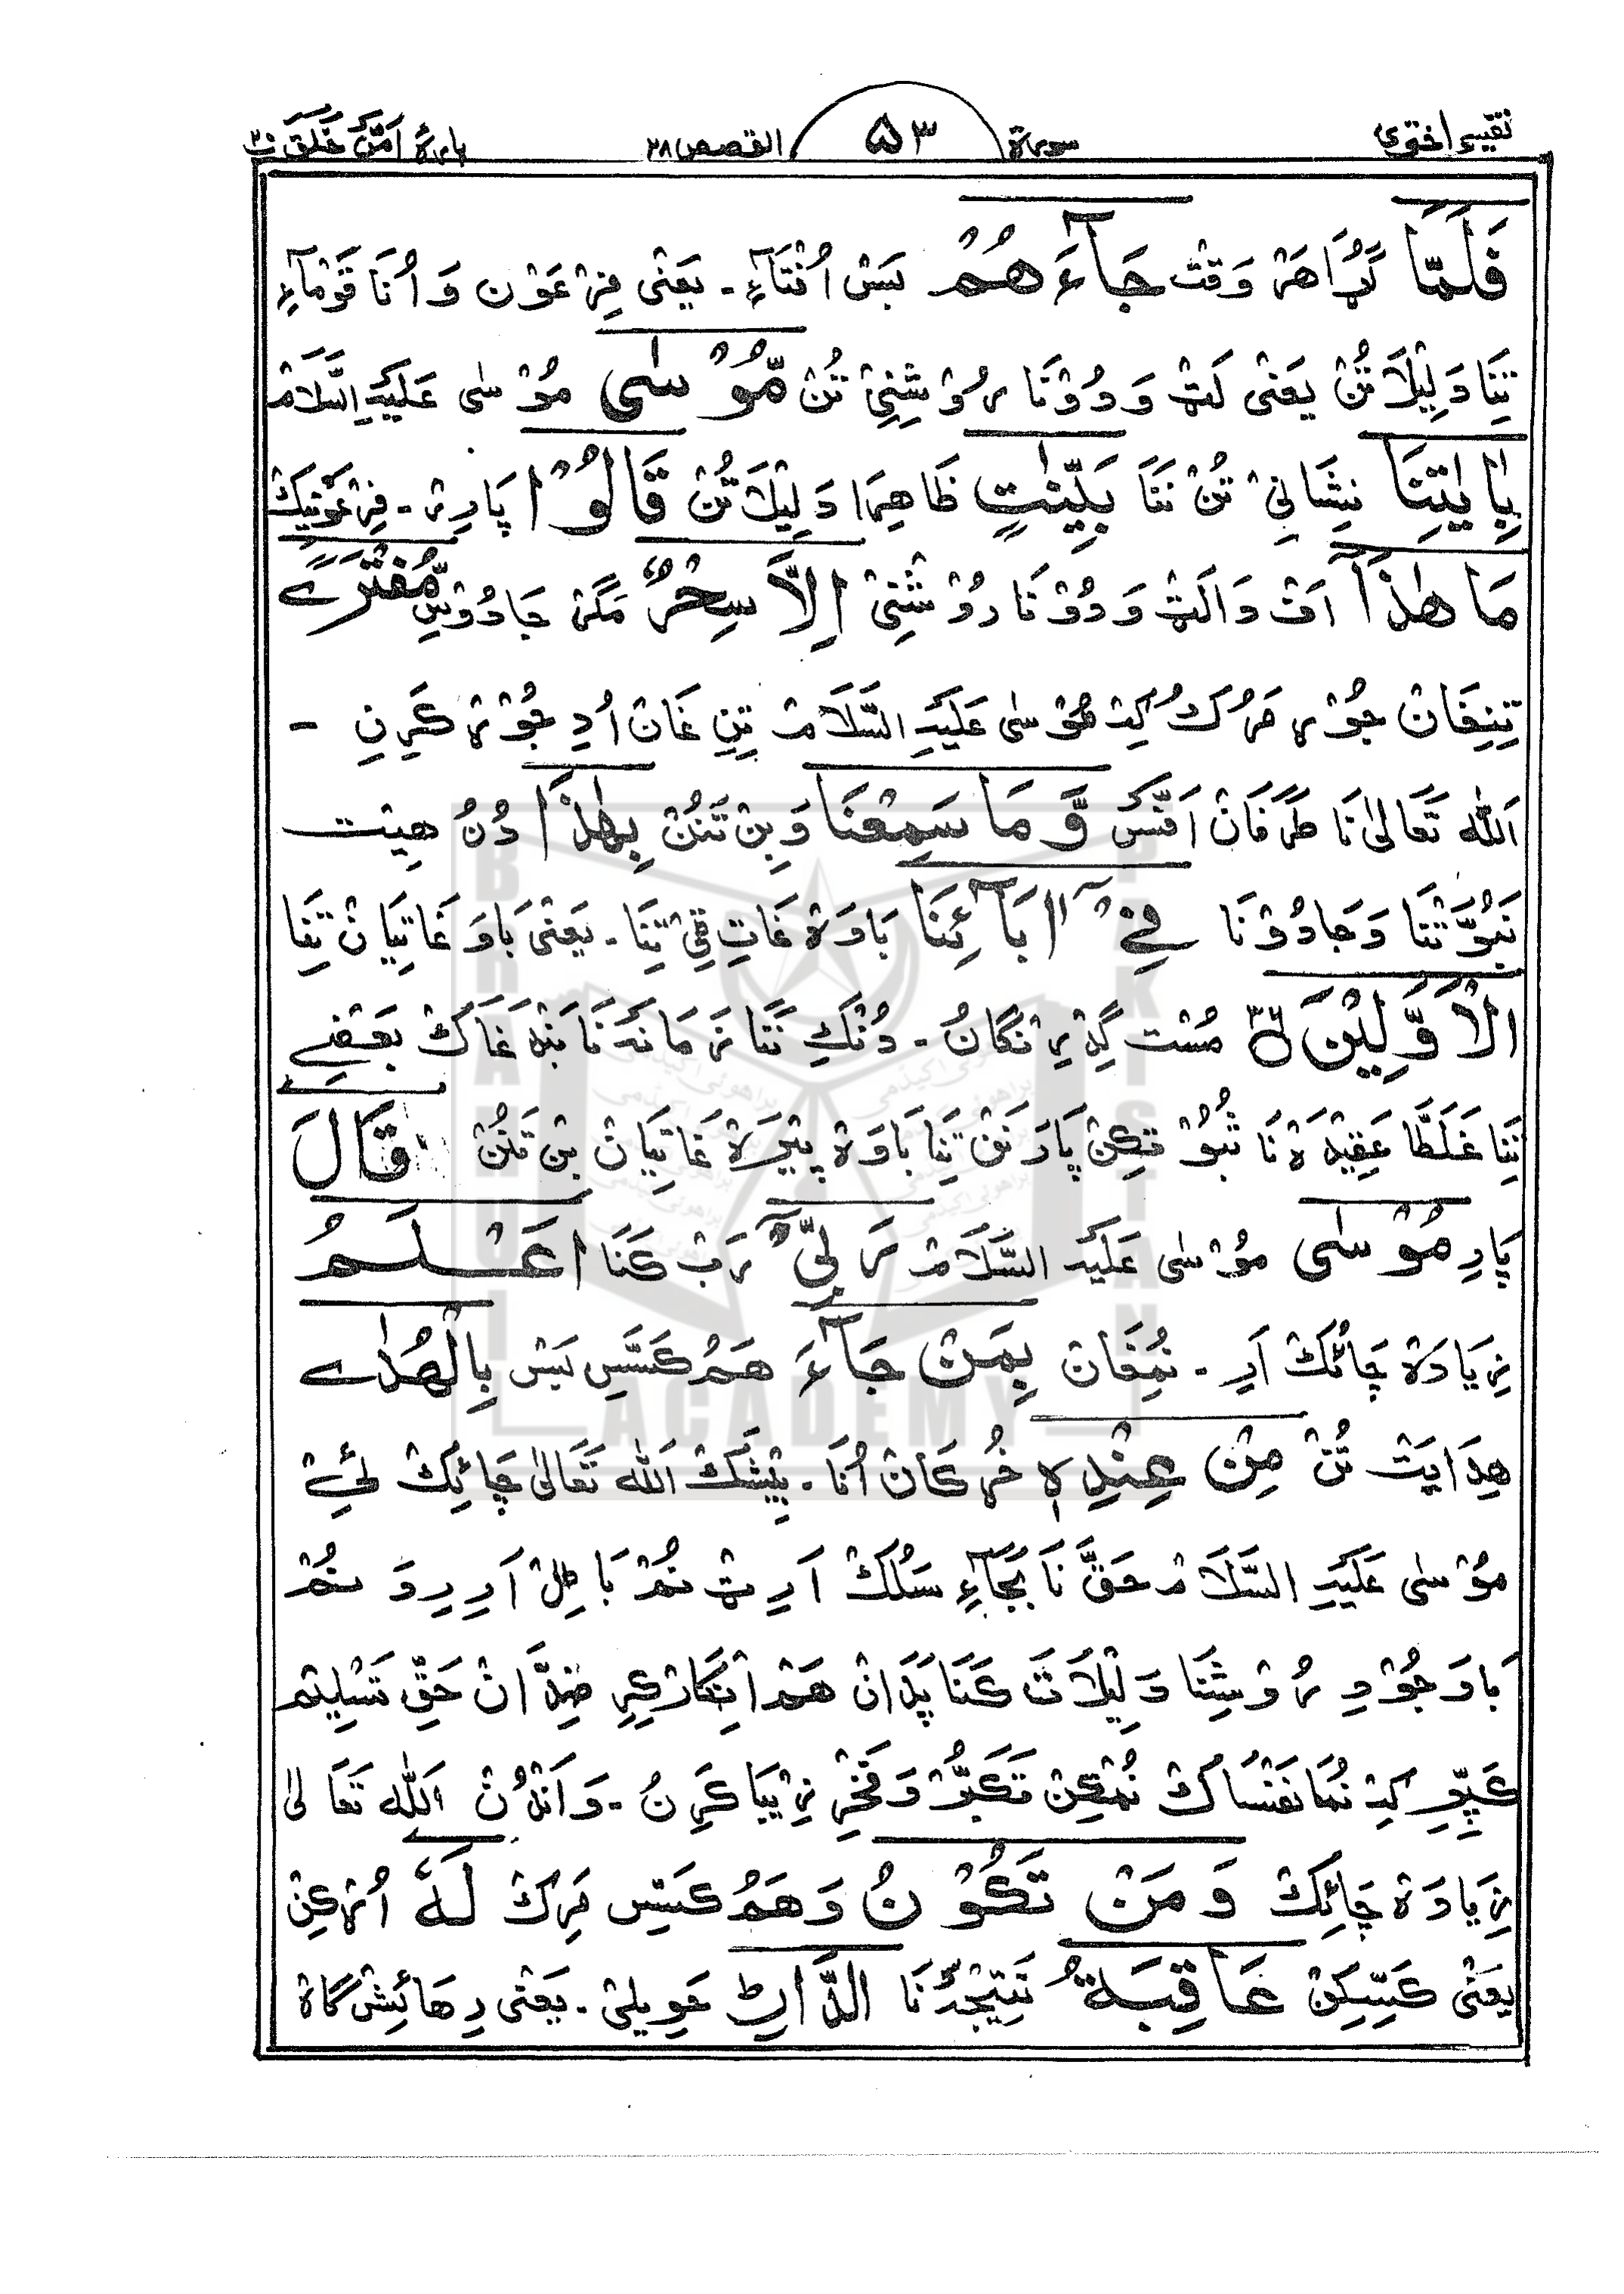 تفسیر اختری سورة ۵۳ القصص ۲۸ پارۂ اَمَّنْ خَلَقَ ۲۰
فَلَمَّا گُڑَاهَرْ وَقْت جَآءَهُمْ بَسْ اُفْتَآءِ۔ یَعْنٰی فِرْعَوْن وَ اُنَا قَوْمَآءِ
تِنَا دَلِیْلَاتْن یَعْنٰی لَٹ وَ دُوْنَا رُوْشَنِیْ تُن مُّوْسٰی مُوْسٰی عَلَیْهِ السَّلَامْ
بِاٰیٰتِنَا نِشَانِیْ تُنْ نَنَا بَیِّنٰتٍ ظَاهِرَا دَلِیْل تُنْ قَالُوْا پَارِر۔ فِرْعَوْنِیَكْ
مَا هٰذَآ اَفْ دَا لَٹ وَ دُوْنَا رُوْشَنِیْ اِلَّا سِحْرٌ مَگَرْ جَادُوْس مُّفْتَرًے
تِنِغَانْ جُوْر مَرُكْ كِه مُوْسٰی عَلَیْهِ السَّلَامْ تِنِ غَان اُدِ جُوْر كَرِنِ -
اَللّٰه تَعَالٰی نَا طَرَفَانْ اَفَّسْ وَّ مَا سَمِعْنَا وَ بِن تَنُنْ بِهٰذَا دُنُ هِیْت
نَبُوَّتْنَا وَ جَادُوْنَا فِیْٓ اٰبَآئِنَا بَاوَه غَاتِ ٹِیْ تِنَا۔ یَعْنٰی بَاوَ غَاتِیَانْ تِنَا
الْاَوَّلِیْنَ مُسْت گِدْرِنْگَانُ۔ دُنْكِه نَنَا زَمَانَه نَا بَنْدَغَاكْ بَعْضِے
تِنَا غَلَطَا عَقِیْدَه نَا ثُبُوْتكِنْ پَارَه نَنْ تِنَا بَاوَه پِیْرَه غَاتِیَانْ بِنْ تَنُنْ قَالَ
پَارِ مُوْسٰی مُوْسٰی عَلَیْهِ السَّلَامْ رَبِّیْٓ رَبْ كَنَا اَعْلَمُ
زِیَادَه چَائِكْ اَرِ۔ نُمِغَان بِمَنْ جَآءَ هَمُ كَسَّسِ بَسْ بِالْهُدٰے
هِدَایَتْ تُنْ مِنْ عِنْدِهٖ خُرْكَانْ اُنَا۔ بِیْشَكْ اَللّٰه تَعَالٰی چَائِكْ لئے
مُوْسٰی عَلَیْهِ السَّلَامْ حَقَّ نَا بَجَّاءِ سَلُكْ اَرِٹ نُمْ بَاطِلْ اَرِرِ وَ نُمْ
بَاوَجُوْدِ رُوْشِنَا دَلِیْلَاتَ كَنَا پَدَانْ هَمْ اِنْكَار كَرِر ضِدَّ انْ حَقِّ تَسْلِیْم
كَپِّرِ كِه نُمَا نَفْسَاكْ نُمْكِنْ تَكَبُّر وَ فَخْر زِیْبَا كَرِنُ۔ وَ اَنْدُنْ اَللّٰه تَعَالٰی
زِیَادَه چَائِكْ وَ مَنْ تَكُوْنُ وَ هَمُ كَسَّس مَرِكْ لَهٗ اُرْكِنْ
یَعْنٰی كَسِّكِنْ عَاقِبَةُ نَتِیْجَه نَا الدَّارِ حَوِیلِیْ۔ یَعْنٰی رِهَائِشْ گَاه
BRAHUI ACADEMY PAKISTAN